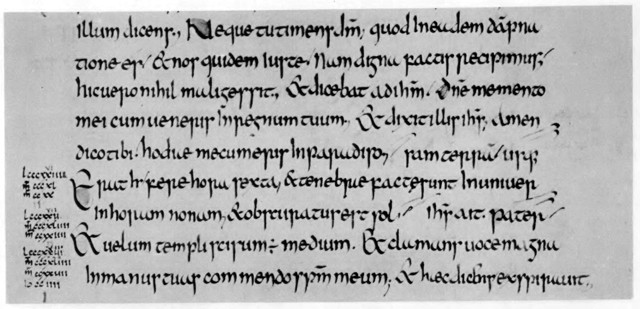 illum dicens., Neque tu timens dm̄; quod In eadem dāpna
tione es / & nos quidem Iuste. Nam digna factis recipimus;
hic uero nihil mali gessit., & dicebat ad ihm̄. Dn̄e memento
mei cum ueneris In regnum tuum. & dixit illi ihs; Amen
dico tibi. hodiae mecum eris In paradiso / ram terrā
Erat hr fere hora sexta, & tenebrae factae sunt In uniuer
In horam nonam, & obscuratus est sol / ihs ait. pater
& uelum templi scisum ÷ medium. & clamans uoce magna
In manus tuas commendo spm̄ meum; & haec dicens expirauit.,